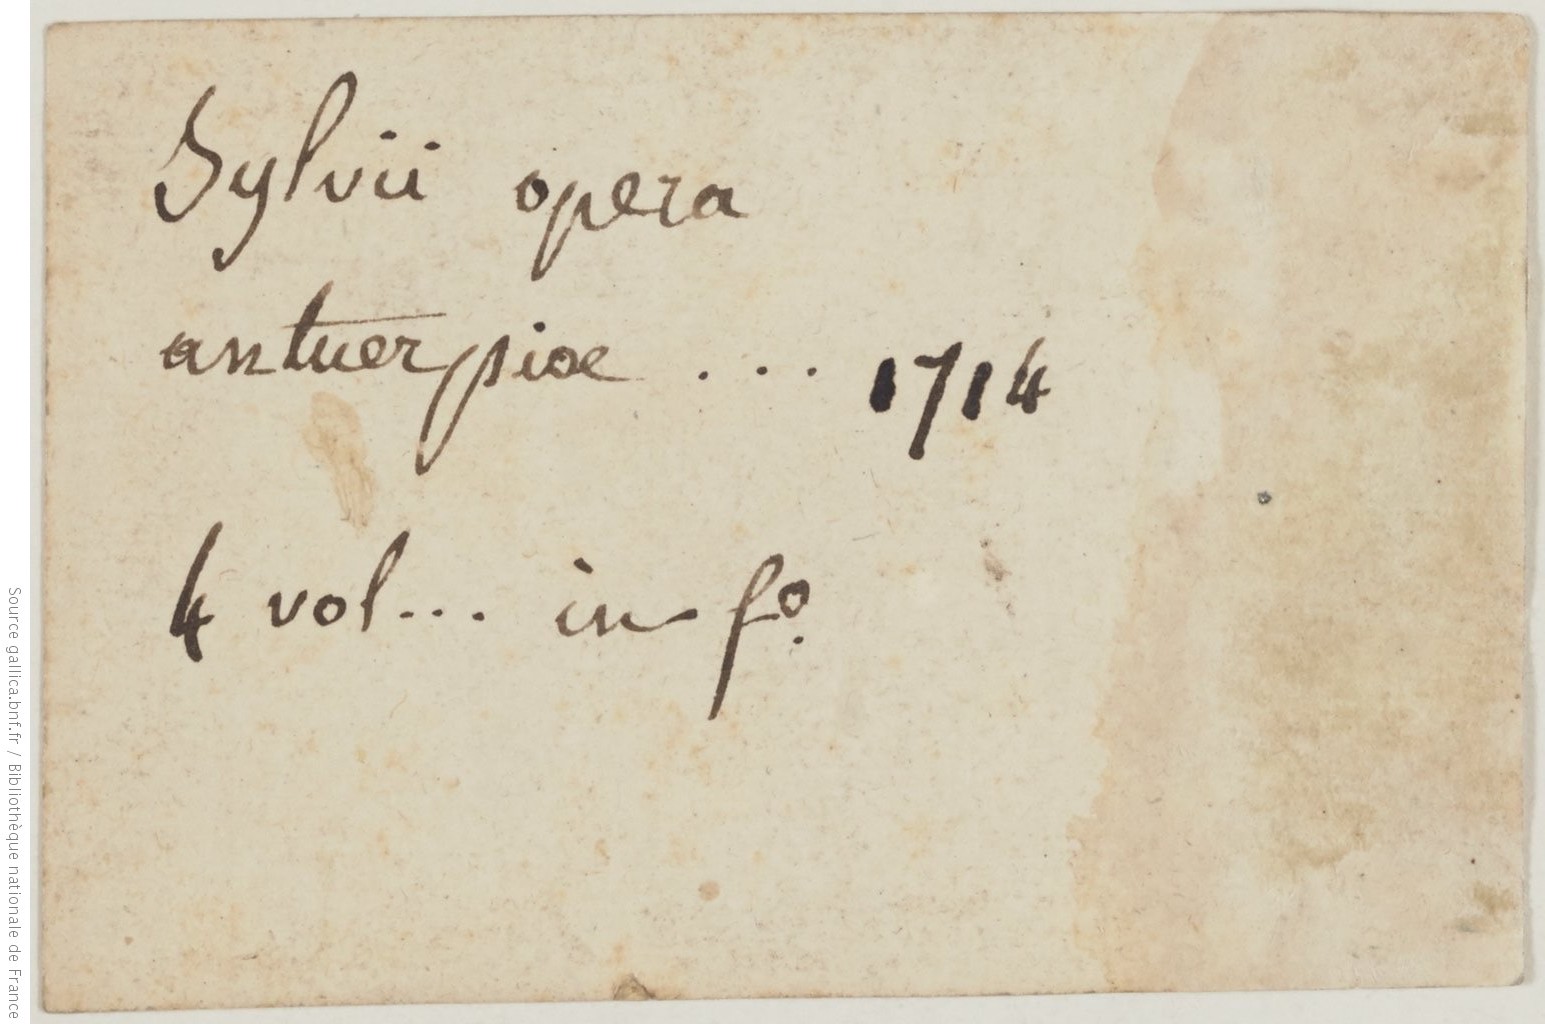 Sylvii opera
antuerpiae ... 1714
4 vol... in fo.
Source gallica.bnf.fr / Bibliothèque nationale de France